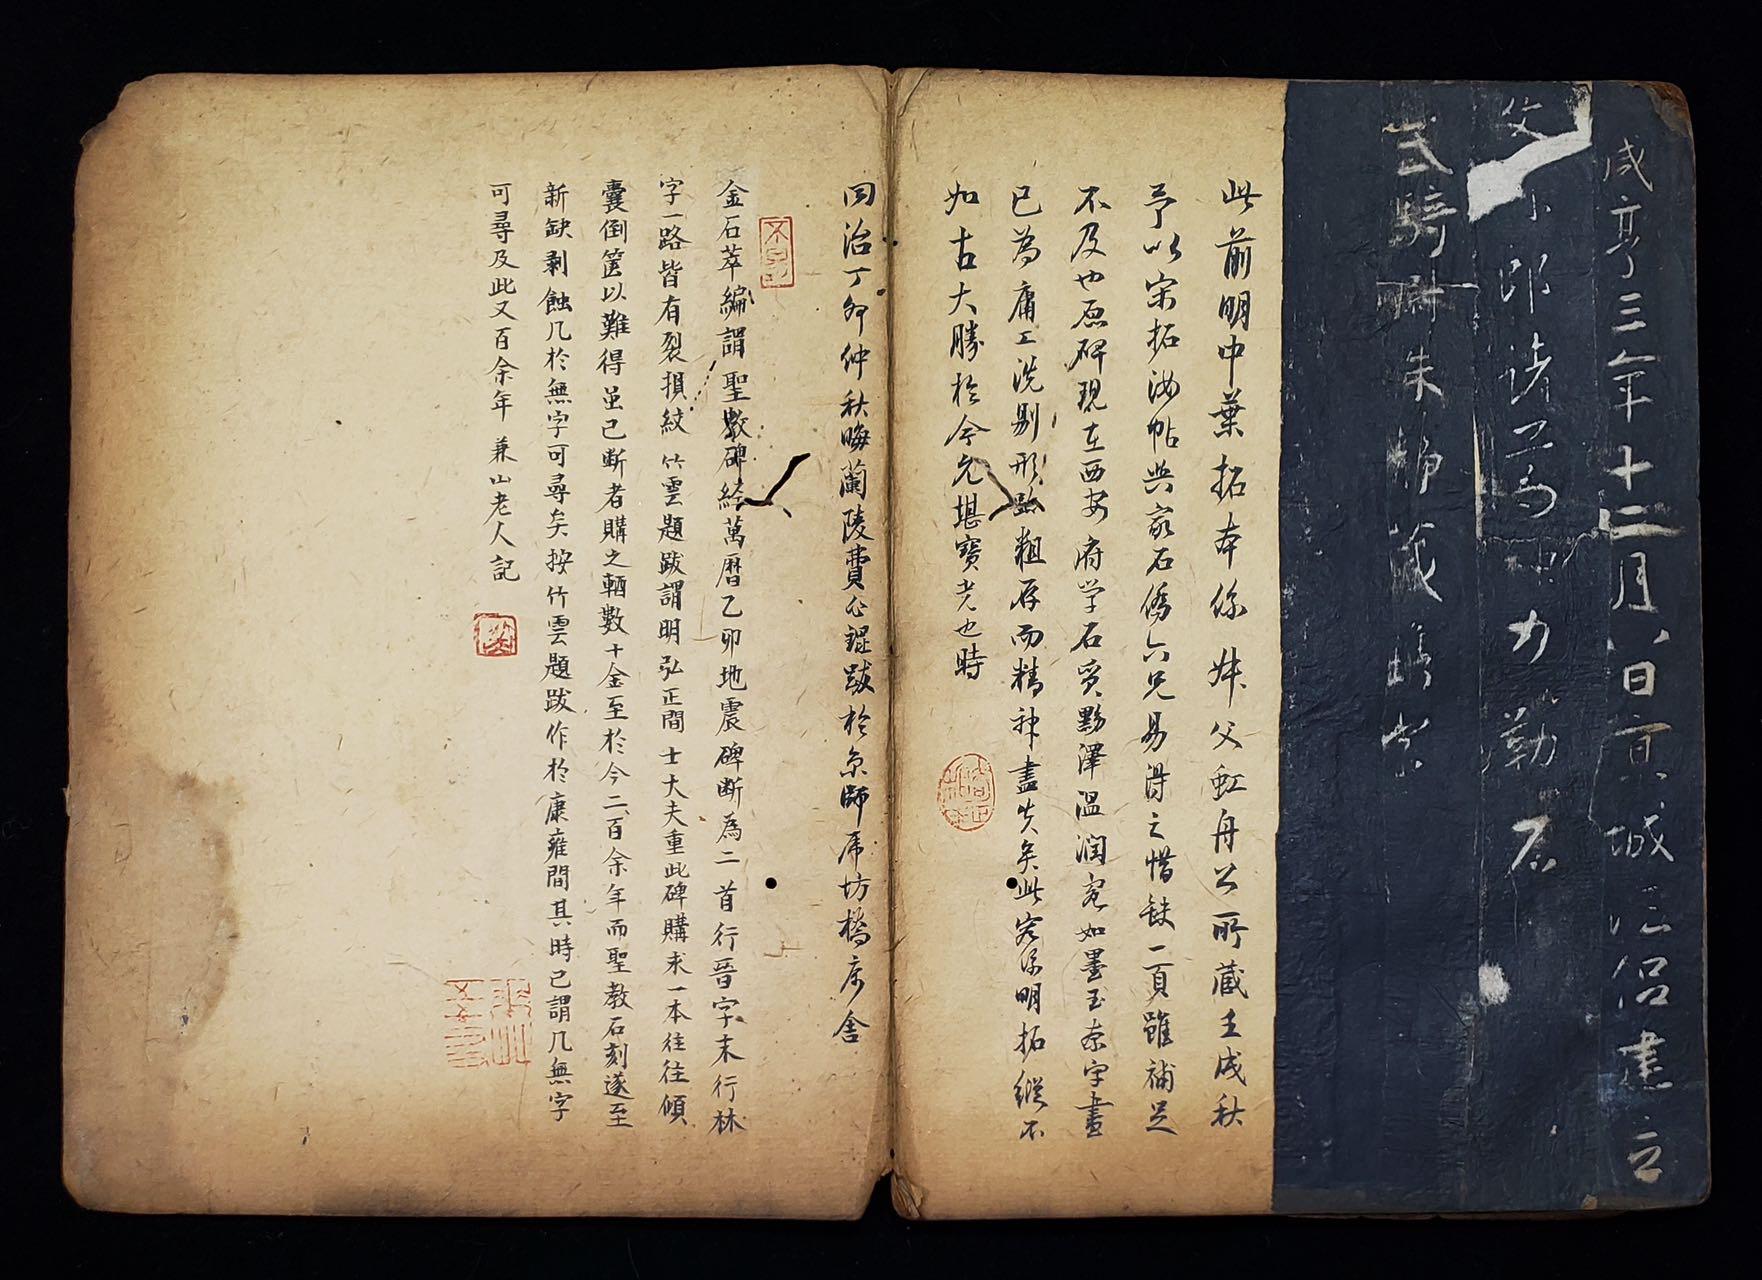 咸亨三年十二月八日京城法侶建立
文林郎諸葛神力勒石
武騎尉朱靜藏鐫字
此前明中葉拓本係叔父虹舟公所藏壬戌秋
予以宋拓汝帖與家石僑六兄易得之惜缺一頁雖補足
不及也原碑現在西安府学石質黝澤温潤宛如墨玉奈字畫
已為庸工洗剔形路粗存而精神盡失矣此容係明拓縱不
如古大勝於今允堪寶光也時
同治丁卯仲秋晦蘭陵費心錕跋於京師虎坊橋店舍
金石萃編謂聖教碑經萬曆乙卯地震碑断為二首行晉字末行林
字一路皆有裂損紋竹雲題跋謂明弘正間士大夫重此碑購求一本往往傾
囊倒篋以難得虽已断者購之輒數十金至於今二百余年而聖教石刻遂至
新缺剥蝕几於無字可尋矣按竹雲題跋作於康雍間其時已謂几無字
可尋及此又百余年 兼山老人記